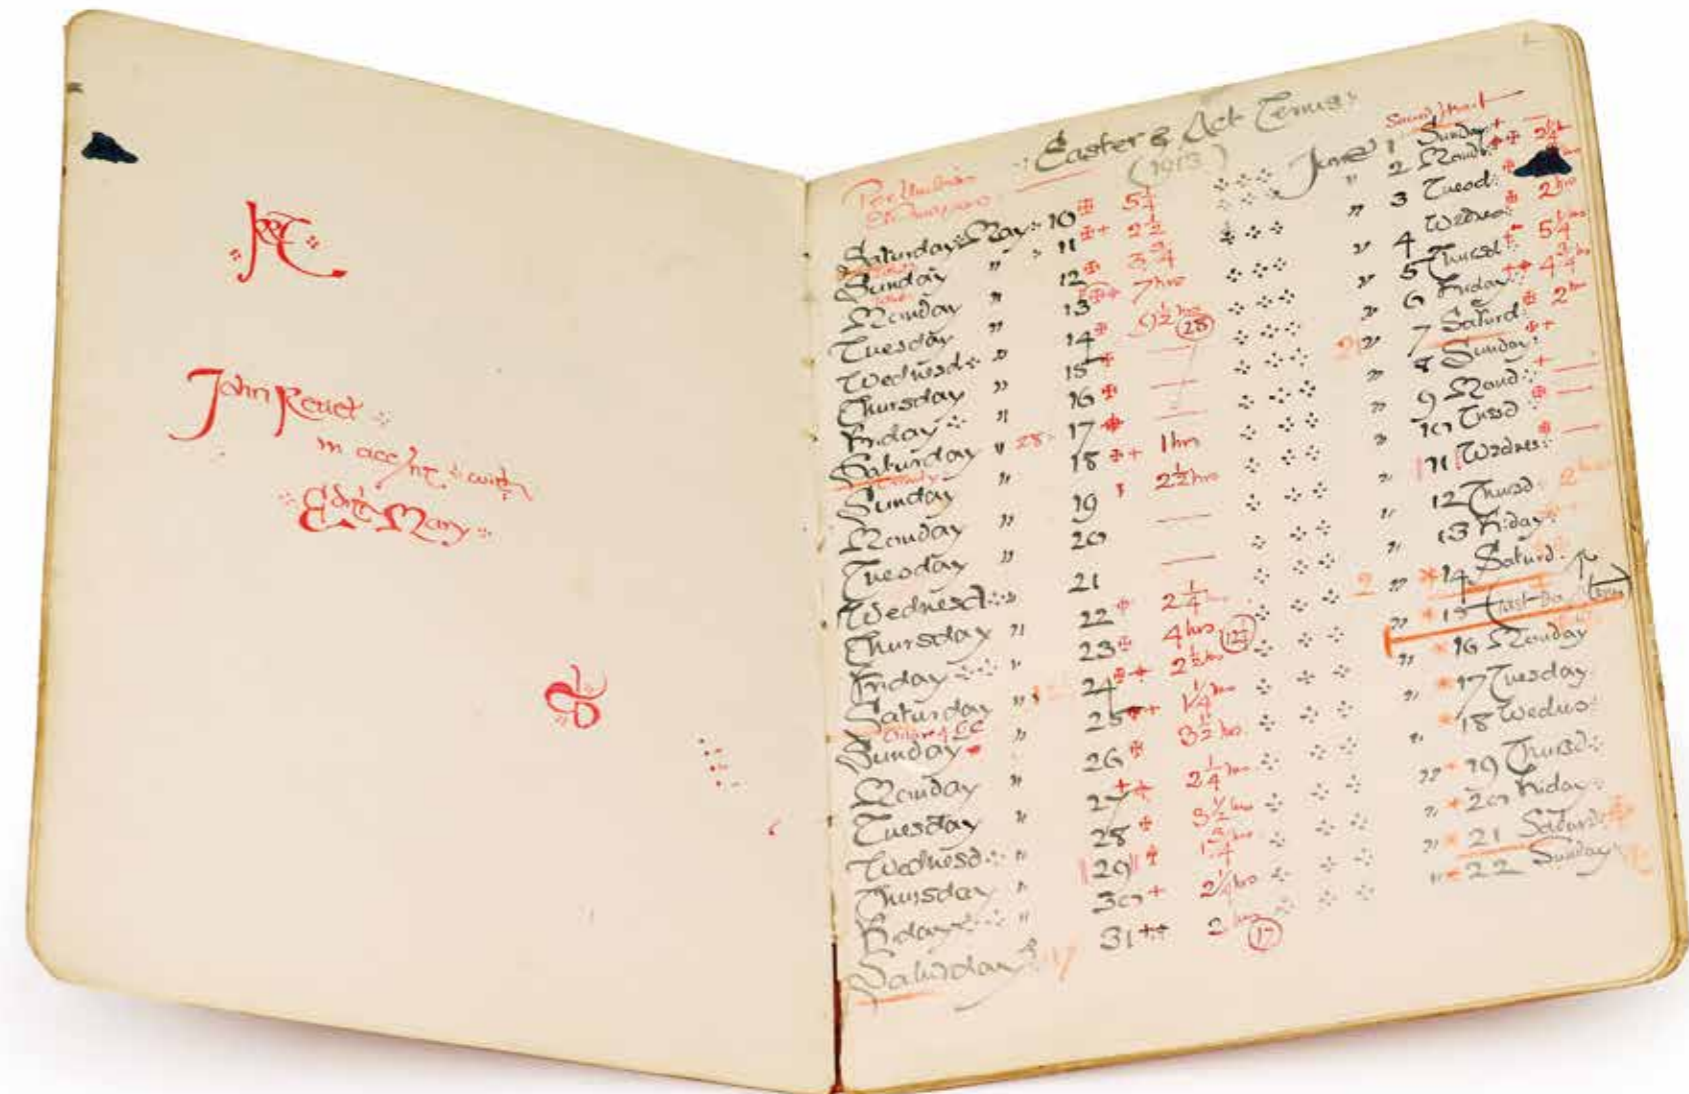 JRRT
John Reuel
in acc/nt with
Edith Mary
Easter & Act Terms
(1913)
Saturday May 10 5 1/4
Sunday " 11 2 1/2
Monday " 12 3 3/4
Tuesday " 13 7 hrs
Wednesd " 14 9 1/2 hrs (28)
Thursday " 15 —
Friday " 16 —
Saturday " 28 17 —
Sunday " 18 1 hr
Monday " 19 2 1/2 hrs
Tuesday " 20 —
Wednesd " 21 —
Thursday " 22 2 1/4
Friday " 23 4 hrs
Saturday " 24 2 1/2 hrs
Sunday " 25 1/4 hr
Monday " 26 3 1/2 hrs
Tuesday " 27 2 1/4 hrs
Wednesd " 28 3 1/2 hrs
Thursday " 29
Friday " 30 2 1/4 hrs
Saturday 17 31 2 hrs (17)
June 1 Sunday —
" 2 Mond
" 3 Tuesd
" 4 Wednes 2 hrs
" 5 Thursd 5 1/4 hrs
" 6 Friday 4 3/4 hrs
" 7 Saturd 2 hrs
" 8 Sunday
" 9 Mond —
" 10 Tuesd —
" 11 Wednes —
" 12 Thursd
" 13 Friday
2 " 14 Saturd
" 15 Last Day
" 16 Monday
" 17 Tuesday
" 18 Wednes
" 19 Thursd
" 20 Friday
" 21 Saturd
" 22 Sunday